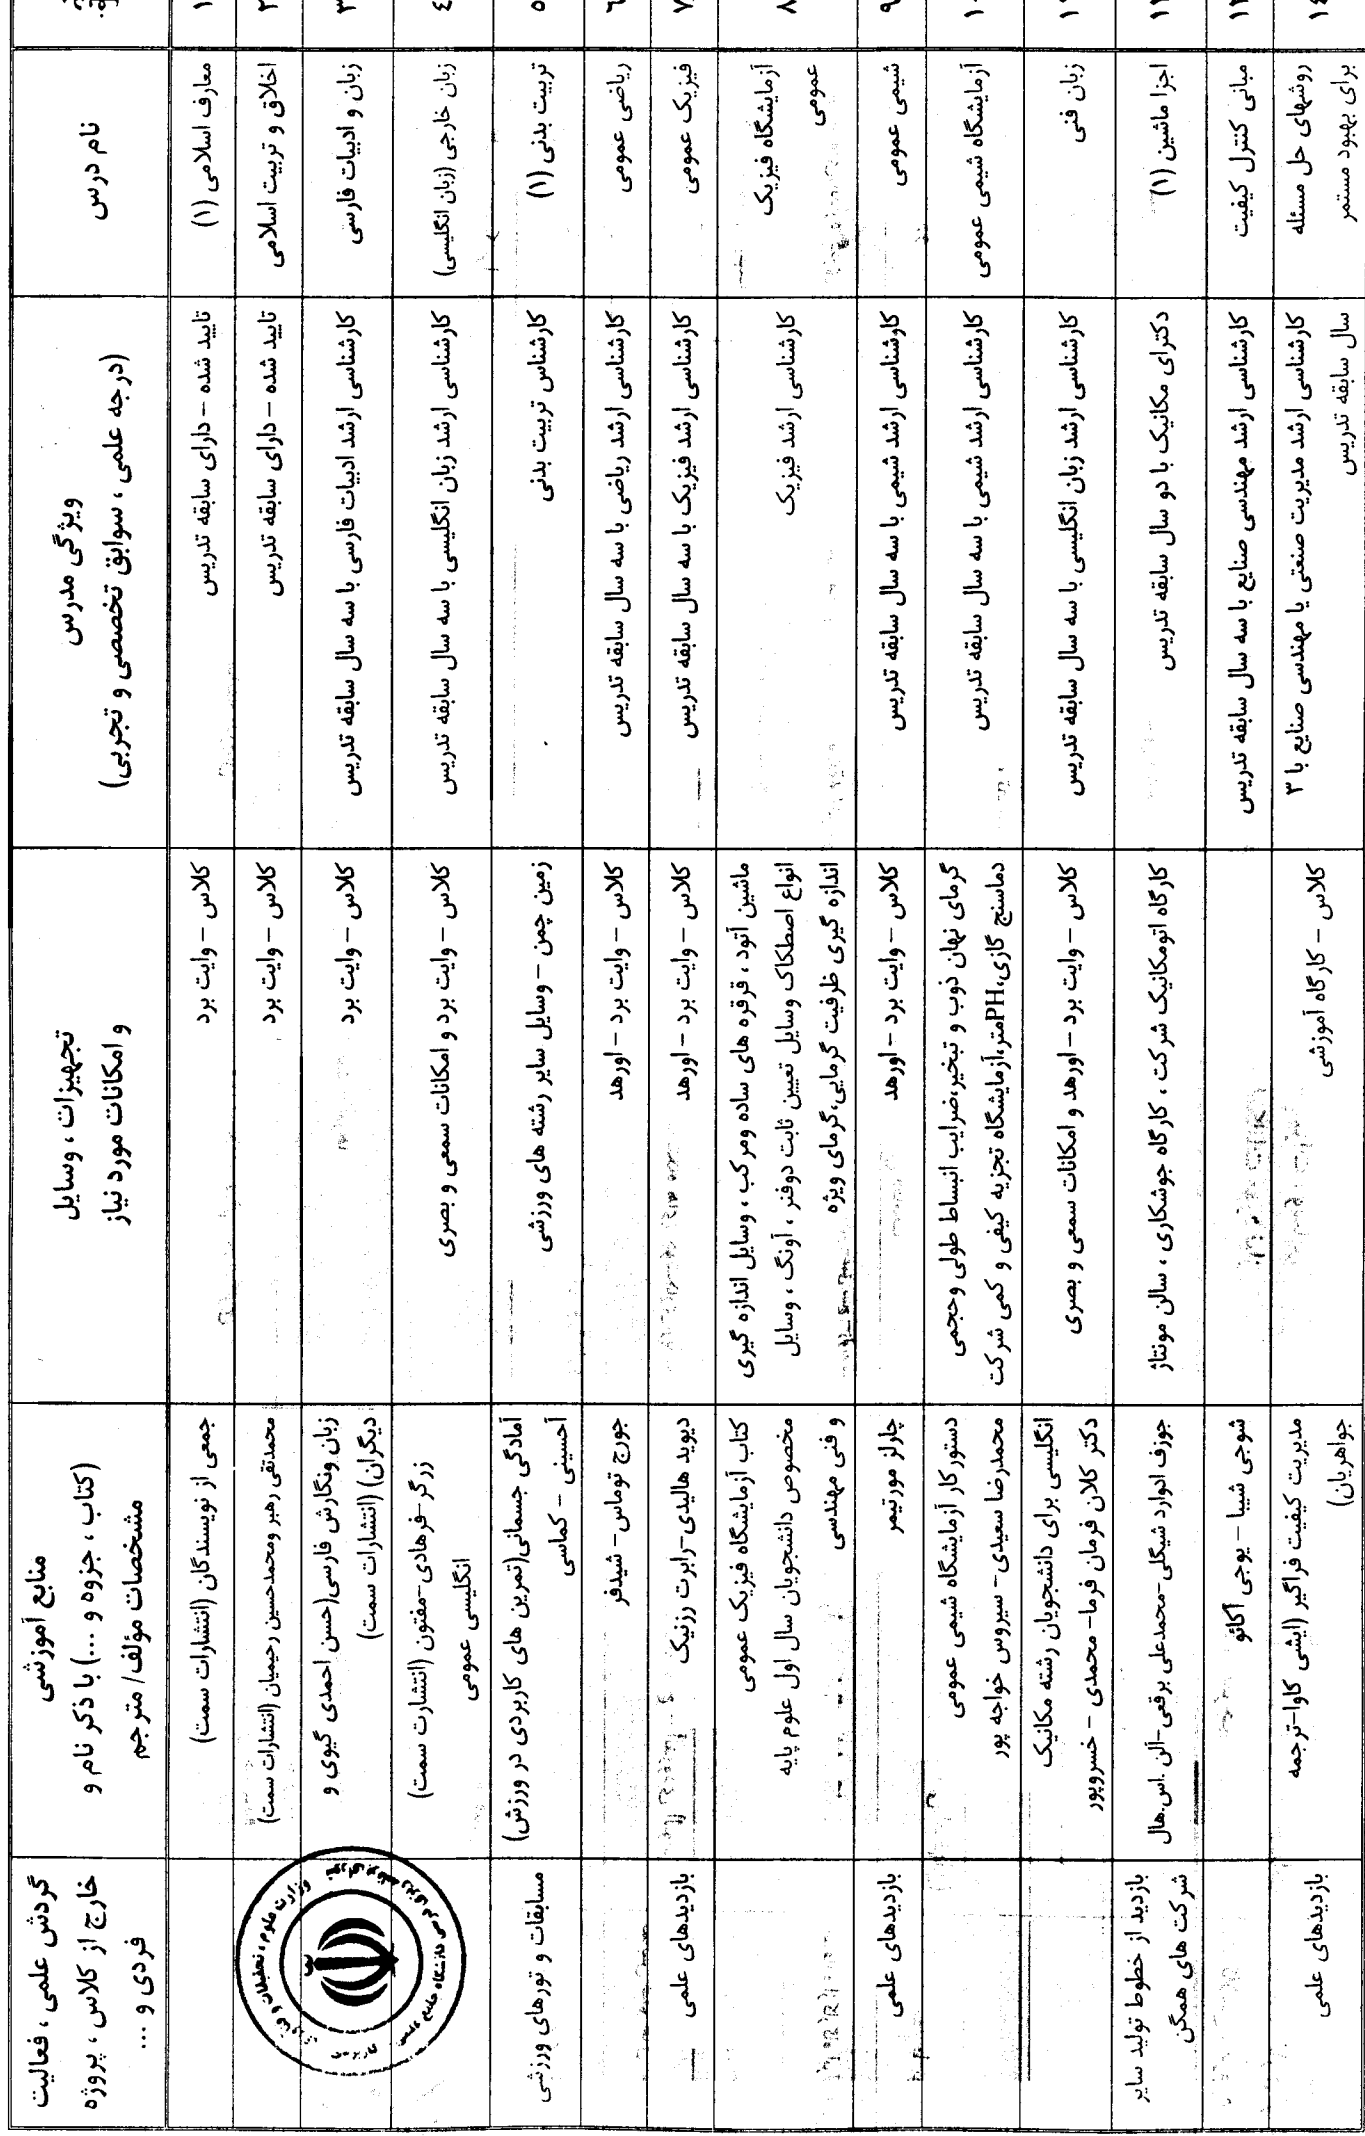 نام درس
ویژگی مدرس
(درجه علمی ، سوابق تخصصی و تجربی)
تجهیزات ، وسایل
و امکانات مورد نیاز
منابع آموزشی
(کتاب ، جزوه و ...) با ذکر نام و
مشخصات مؤلف/ مترجم
گردش علمی ، فعالیت
خارج از کلاس ، پروژه
فردی و ...
۱
معارف اسلامی (۱)
تایید شده – دارای سابقه تدریس
کلاس – وایت برد
جمعی از نویسندگان (انتشارات سمت)
۲
اخلاق و تربیت اسلامی
تایید شده – دارای سابقه تدریس
کلاس – وایت برد
محمدتقی رهبر ومحمدحسین رحیمیان (انتشارات سمت)
۳
زبان و ادبیات فارسی
کارشناسی ارشد ادبیات فارسی با سه سال سابقه تدریس
کلاس – وایت برد
زبان ونگارش فارسی(حسن احمدی گیوی و
دیگران) (انتشارات سمت)
٤
زبان خارجی (زبان انگلیسی)
کارشناسی ارشد زبان انگلیسی با سه سال سابقه تدریس
کلاس – وایت برد و امکانات سمعی و بصری
زرگر-فرهادی-مفتون (انتشارت سمت)
انگلیسی عمومی
٥
تربیت بدنی (۱)
کارشناس تربیت بدنی
زمین چمن – وسایل سایر رشته های ورزشی
آمادگی جسمانی(تمرین های کاربردی در ورزش)
آحسینی – کماسی
مسابقات و تورهای ورزشی
٦
ریاضی عمومی
کارشناسی ارشد ریاضی با سه سال سابقه تدریس
کلاس – وایت برد – اورهد
جورج توماس – شیدفر
۷
فیزیک عمومی
کارشناسی ارشد فیزیک با سه سال سابقه تدریس
کلاس – وایت برد – اورهد
دیوید هالیدی-رابرت رزنیک
بازدیدهای علمی
۸
آزمایشگاه فیزیک
عمومی
کارشناسی ارشد فیزیک
ماشین آتود ، قرقره های ساده ومرکب ، وسایل اندازه گیری
انواع اصطکاک وسایل تعیین ثابت دوفنر ، آونگ ، وسایل
اندازه گیری ظرفیت گرمایی،گرمای ویژه
کتاب آزمایشگاه فیزیک عمومی
مخصوص دانشجویان سال اول علوم پایه
و فنی مهندسی
۹
شیمی عمومی
کاوشناسی ارشد شیمی با سه سال سابقه تدریس
کلاس – وایت برد – اورهد
چارلز مورتیمر
بازدیدهای علمی
۱۰
آزمایشگاه شیمی عمومی
کارشناسی ارشد شیمی با سه سال سابقه تدریس
گرمای نهان ذوب و تبخیر،ضرایب انبساط طولی وحجمی
دماسنج گازی،PHمتر،آزمایشگاه تجزیه کیفی و کمی شرکت
دستور کار آزمایشگاه شیمی عمومی
محمدرضا سعیدی – سیروس خواجه پور
۱۱
زبان فنی
کارشناسی ارشد زبان انگلیسی با سه سال سابقه تدریس
کلاس – وایت برد – اورهد و امکانات سمعی و بصری
انگلیسی برای دانشجویان رشته مکانیک
دکتر کلان فرمان فرما– محمدی – خسروپور
۱۲
اجزا ماشین (۱)
دکترای مکانیک با دو سال سابقه تدریس
کارگاه اتومکانیک شرکت ، کارگاه جوشکاری ، سالن مونتاژ
جوزف ادوارد شیگلی–محمدعلی برقعی–آلن .اس.هال
بازدید از خطوط تولید سایر
شرکت های همگن
۱۳
مبانی کنترل کیفیت
کارشناسی ارشد مهندسی صنایع با سه سال سابقه تدریس
شوجی شیبا – یوجی آکائو
۱٤
روشهای حل مسئله
برای بهبود مستمر
کارشناسی ارشد مدیریت صنعتی یا مهندسی صنایع با ۳
سال سابقه تدریس
کلاس – کارگاه آموزشی
مدیریت کیفیت فراگیر (ایشی کاوا-ترجمه
جواهریان)
بازدیدهای علمی
وزارت علوم، تحقیقات و فناوری